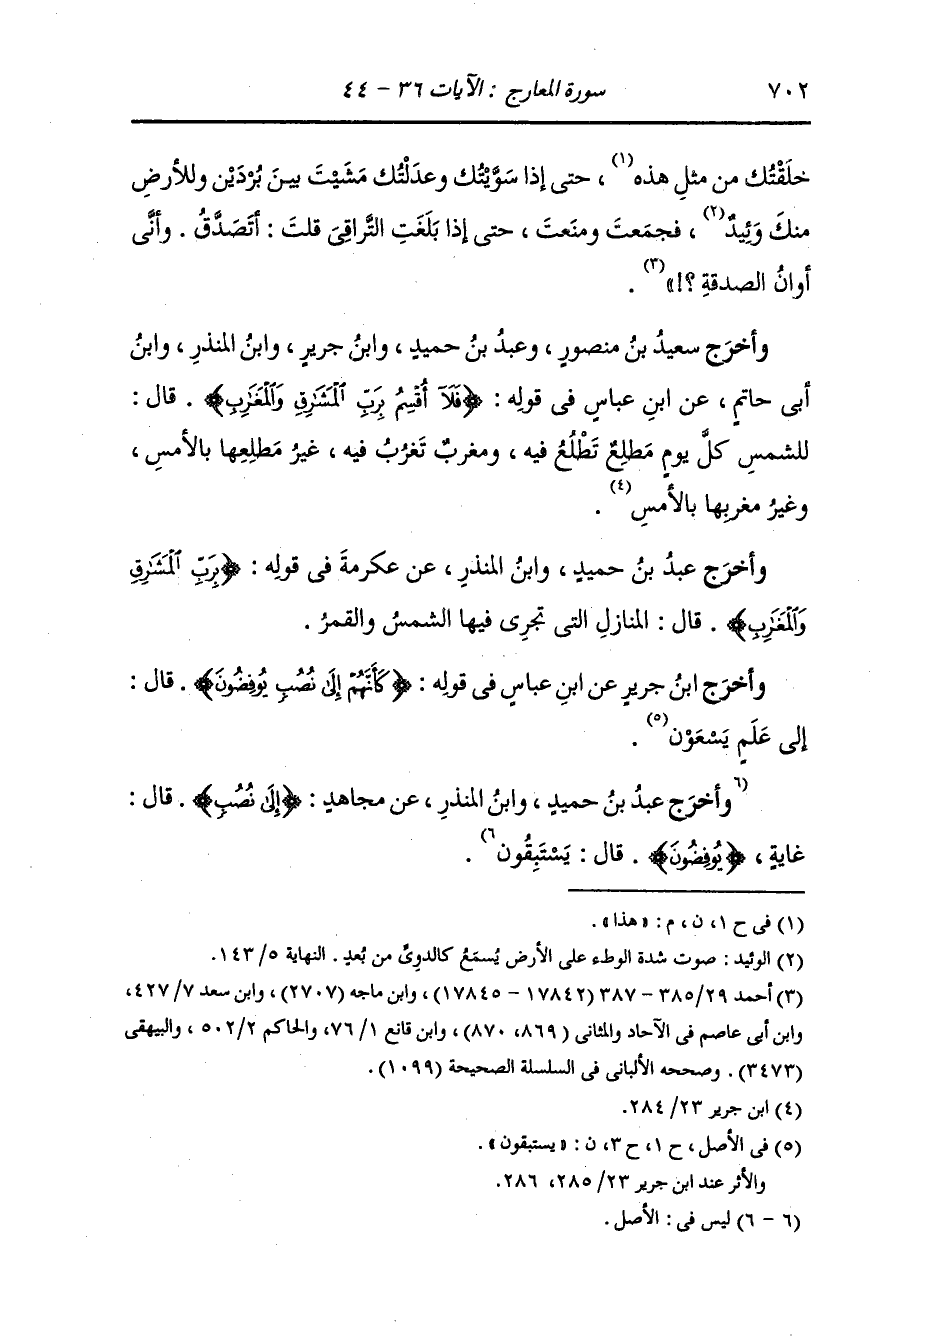 ٧٠٢ سورة المعارج : الآيات ٣٦ – ٤٤
خلَقْتُك من مثلِ هذه(١) ، حتى إذا سَوَّيْتُك وعدَلْتُك مَشَيْتَ بينَ بُرْدَيْن وللأرضِ
منكَ وَئِيدٌ(٢) ، فجمَعتَ ومنَعتَ ، حتى إذا بَلَغَتِ التَّراقِىَ قلتَ : أَتَصَدَّقُ . وأنَّى
أوانُ الصدقةِ ؟!»(٣) .
وأخرَج سعيدُ بنُ منصورٍ ، وعبدُ بنُ حميدٍ ، وابنُ جريرٍ ، وابنُ المنذرِ ، وابنُ
أبى حاتمٍ ، عن ابنِ عباسٍ فى قولِه : ﴿فَلَآ أُقْسِمُ بِرَبِّ ٱلْمَشَٰرِقِ وَٱلْمَغَٰرِبِ﴾ . قال :
للشمسِ كلَّ يومٍ مَطلِعٌ تَطْلُعُ فيه ، ومغربٌ تَغرُبُ فيه ، غيرُ مَطلِعِها بالأمسِ ،
وغيرُ مغربِها بالأمسِ(٤) .
وأخرَج عبدُ بنُ حميدٍ ، وابنُ المنذرِ ، عن عكرمةَ فى قولِه : ﴿بِرَبِّ ٱلْمَشَٰرِقِ
وَٱلْمَغَٰرِبِ﴾ . قال : المنازلِ التى تجرِى فيها الشمسُ والقمرُ .
وأخرَج ابنُ جريرٍ عن ابنِ عباسٍ فى قولِه : ﴿كَأَنَّهُمْ إِلَىٰ نُصُبٍ يُوفِضُونَ﴾ . قال :
إلى عَلَمٍ يَسْعَوْن(٥) .
(٦وأخرَج عبدُ بنُ حميدٍ ، وابنُ المنذرِ ، عن مجاهدٍ : ﴿إِلَىٰ نُصُبٍ﴾ . قال :
غايةٍ ، ﴿يُوفِضُونَ﴾ . قال : يَسْتَبِقُون٦) .
(١) فى ح ١، ن ، م : «هذا» .
(٢) الوئيد : صوت شدة الوطء على الأرض يُسمَعُ كالدوىِّ من بُعدٍ . النهاية ٥/ ١٤٣.
(٣) أحمد ٢٩/ ٣٨٥ – ٣٨٧ (١٧٨٤٢ – ١٧٨٤٥) ، وابن ماجه (٢٧٠٧) ، وابن سعد ٧/ ٤٢٧،
وابن أبى عاصم فى الآحاد والمثانى ( ٨٦٩، ٨٧٠) ، وابن قانع ١/ ٧٦، والحاكم ٢/ ٥٠٢ ، والبيهقى
(٣٤٧٣) . وصححه الألبانى فى السلسلة الصحيحة (١٠٩٩) .
(٤) ابن جرير ٢٣/ ٢٨٤.
(٥) فى الأصل ، ح ١، ح ٣، ن : «يستبقون» .
والأثر عند ابن جرير ٢٣/ ٢٨٥، ٢٨٦.
(٦ – ٦) ليس فى : الأصل .